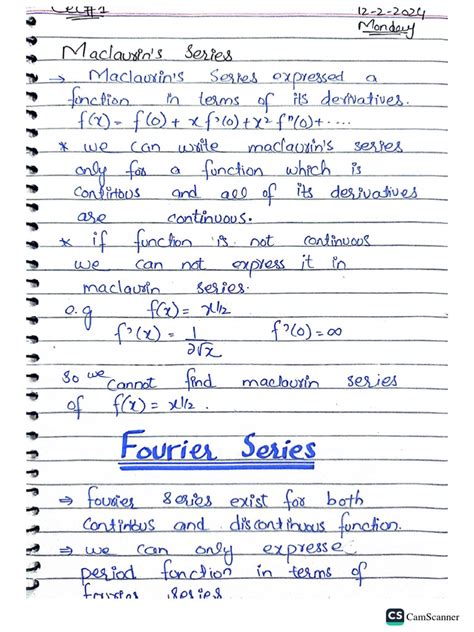 Lect#1
12-2-2024
Monday
Maclaurin's Series
→ Maclaurin's Series expressed a
function in terms of its derivatives.
f(x) = f(0) + x f'(0) + x² f''(0) + ....
* we can write maclaurin's series
only for a function which is
continous and all of its derivatives
are continuous.
* if function is not continuous
we can not express it in
maclaurin series.
e.g f(x) = x1/2
f'(x) = 1/2√x f'(0) = ∞
So we cannot find maclaurin series
of f(x) = x1/2.
Fourier Series
⇒ fourier series exist for both
continous and discontinuous function.
⇒ we can only expresse
period function in terms of
fourier series
CS CamScanner